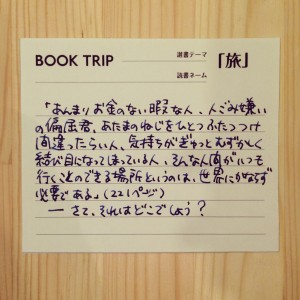 BOOK TRIP
選書テーマ 「旅」
読書ネーム
「あんまりお金のない暇な人、人ごみ嫌い
の偏屈君、あたまのねじをひとつふたつつけ
間違ったらしい人、気持ちがぎゅっとむずかしく
結び目になってしまっている人、そんな人間がいつも
行くことのできる場所というのは、世界にかならず
必要である」(221ページ)
― さて、それはどこでしょう?